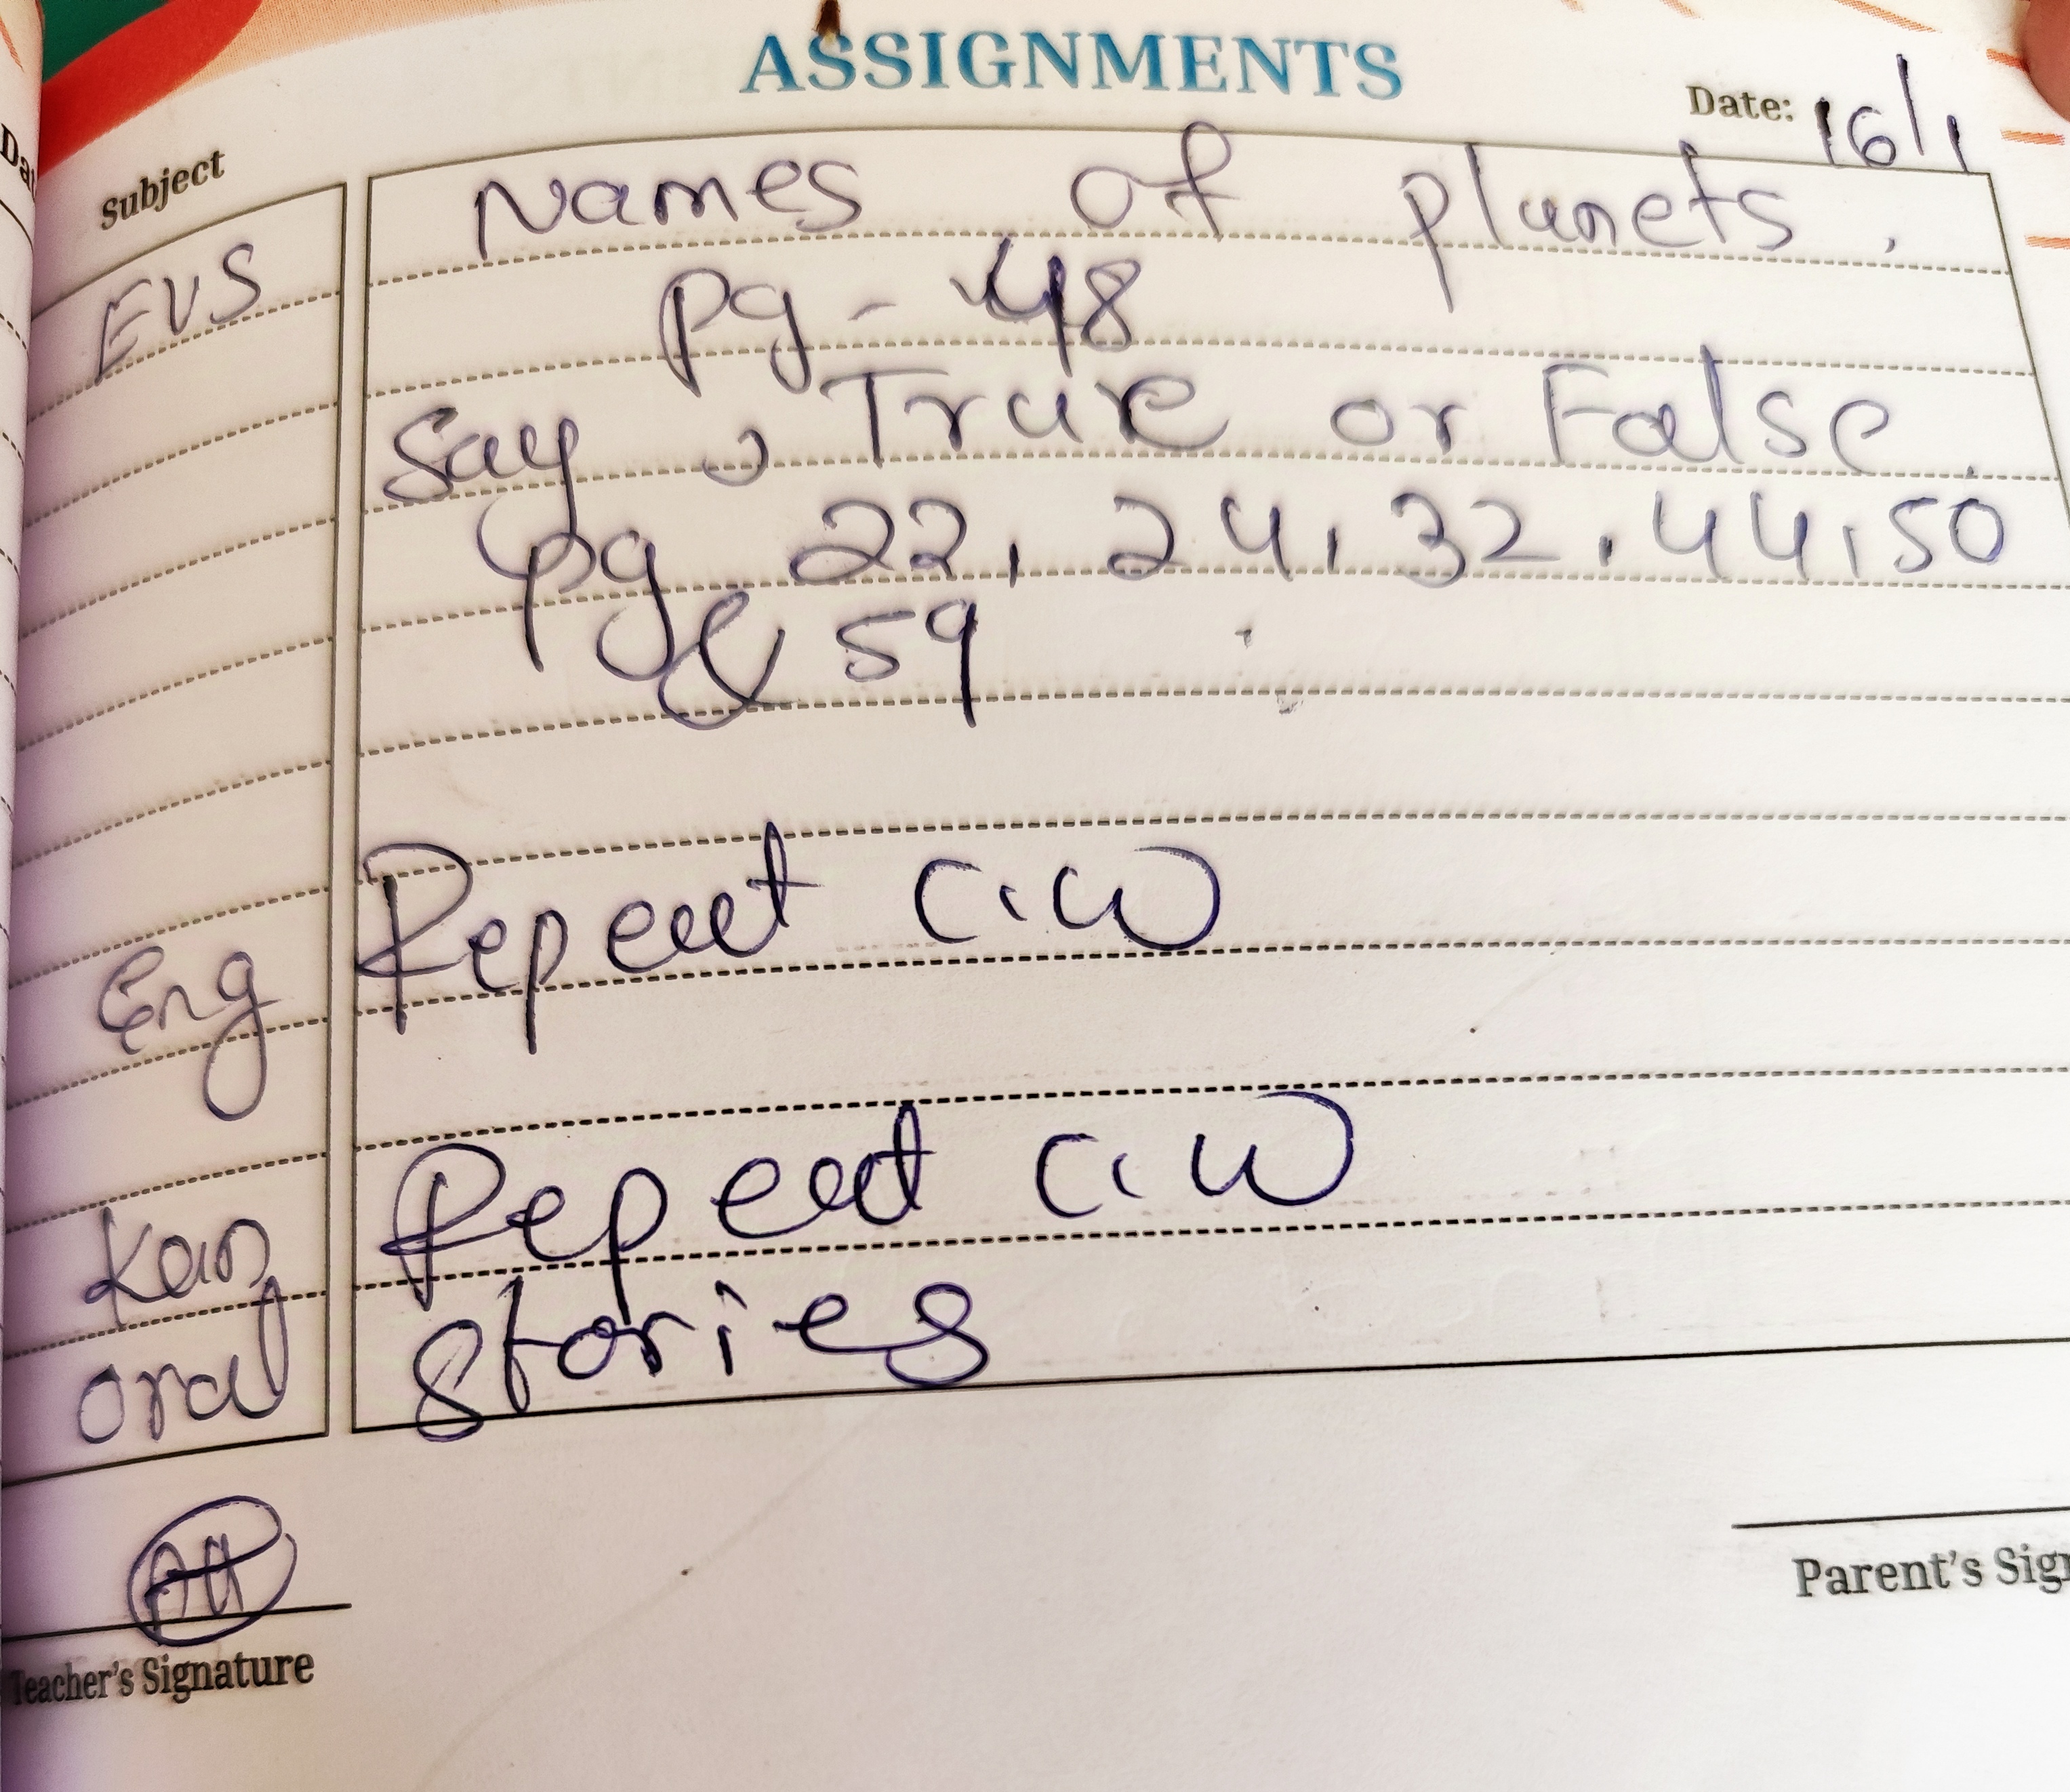 ASSIGNMENTS
Date: 16/1
Subject
EVS
Names of planets.
pg - 48
Say, True or False.
pg 22, 24, 32, 44, 50
& 59
Eng
Repeat C.W
Kan
Repeat C.W
oral
Stories
Teacher's Signature
Parent's Sign